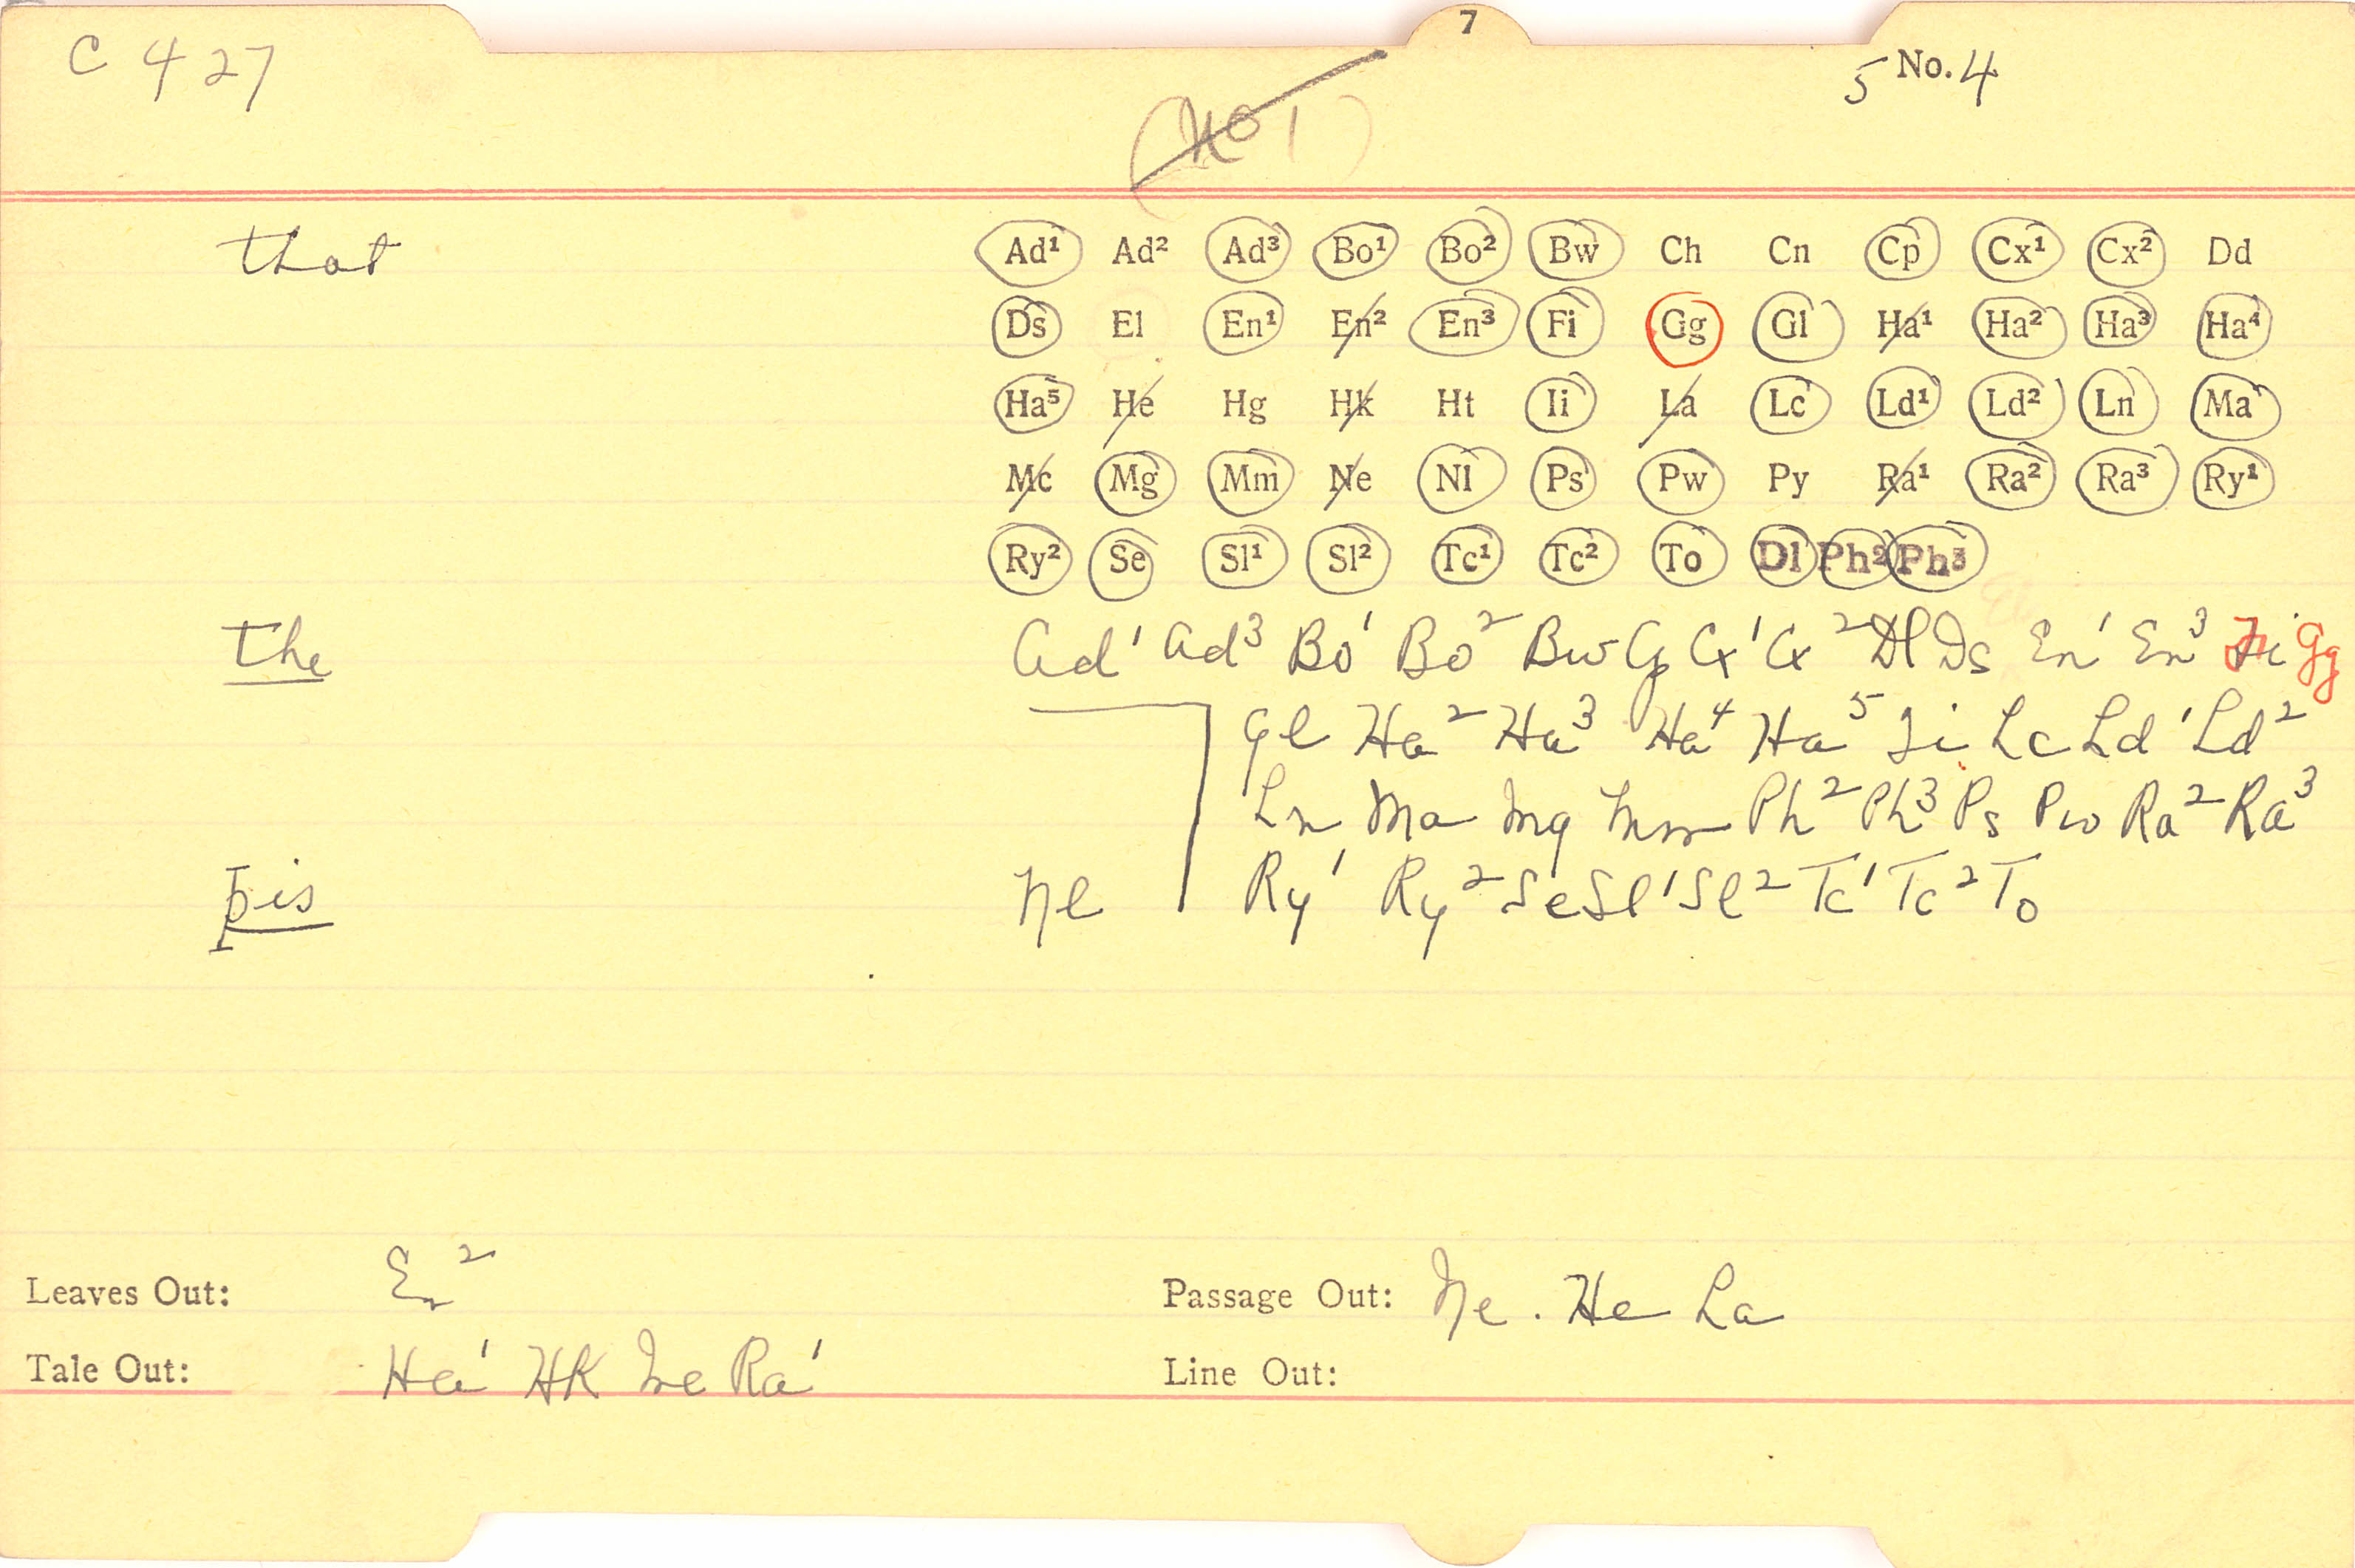 7
C 427
5 No. 4
(No 1)
that
Ad¹ Ad² Ad³ Bo¹ Bo² Bw Ch Cn Cp Cx¹ Cx² Dd
Ds El En¹ En² En³ Fi Gg Gl Ha¹ Ha² Ha³ Ha⁴
Ha⁵ He Hg Hk Ht Ii La Lc Ld¹ Ld² Ln Ma
Mc Mg Mm Ne Nl Ps Pw Py Ra¹ Ra² Ra³ Ry¹
Ry² Se Sl¹ Sl² Tc¹ Tc² To Dl Ph² Ph³
the Ad¹ Ad³ Bo¹ Bo² Bw Cp Cx¹ Cx² Dl Ds En¹ En³ Fi Gg
Gl Ha² Ha³ Ha⁴ Ha⁵ Ii Lc Ld¹ Ld²
Ln Ma Mg Mm Ph² Ph³ Ps Pw Ra² Ra³
þis Nl Ry¹ Ry² Se Sl¹ Sl² Tc¹ Tc² To
Leaves Out: En²
Passage Out: Ne. He La
Tale Out: Ha¹ Hk Mc Ra¹
Line Out: